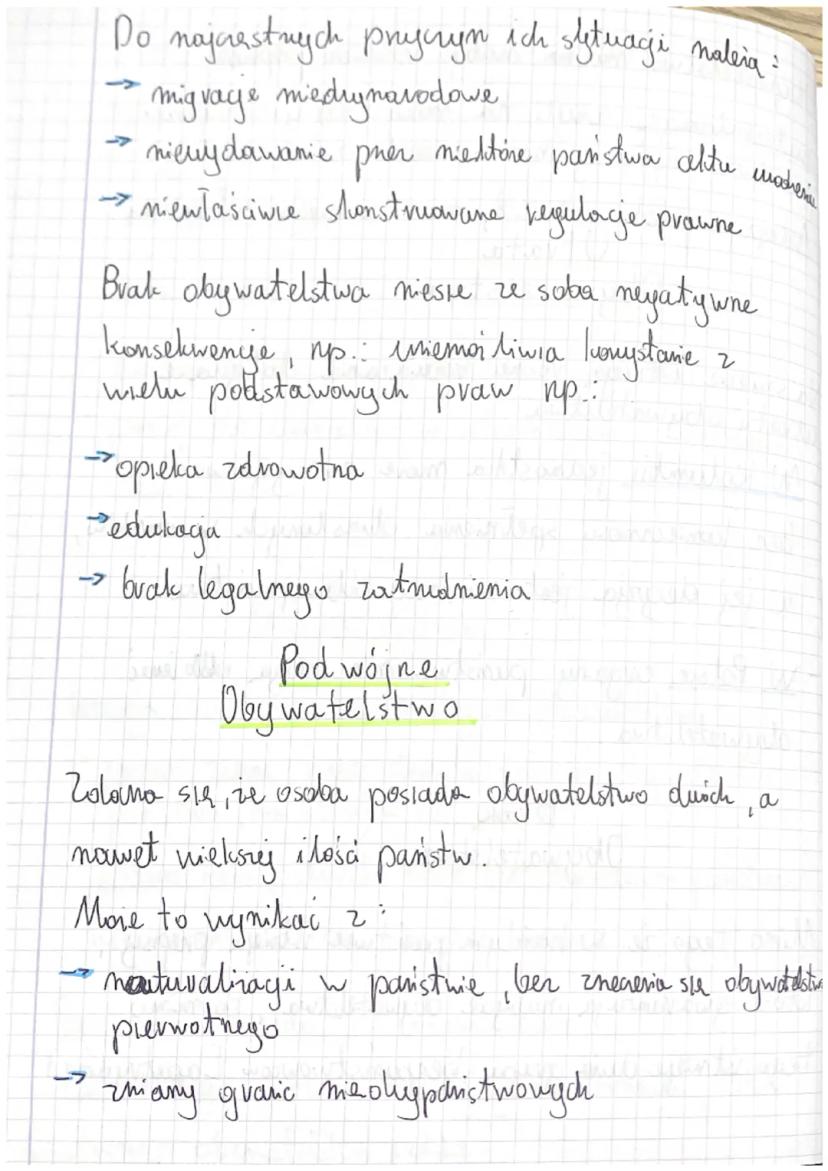 Do najczęstszych przyczyn ich sytuacji należą:
→ migracje międzynarodowe
→ niewydawanie przez niektóre państwa aktu urodzenia
→ niewłaściwie skonstruowane regulacje prawne
Brak obywatelstwa niesie ze sobą negatywne
konsekwencje, np.: uniemożliwia korzystanie z
wielu podstawowych praw np.:
→ opieka zdrowotna
→ edukacja
→ brak legalnego zatrudnienia
Podwójne
Obywatelstwo
Zdarza się, że osoba posiada obywatelstwo dwóch, a
nawet większej ilości państw.
Może to wynikać z:
→ naturalizacji w państwie, bez zrzeczenia się obywatelstwa
pierwotnego
→ zmiany granic międzypaństwowych